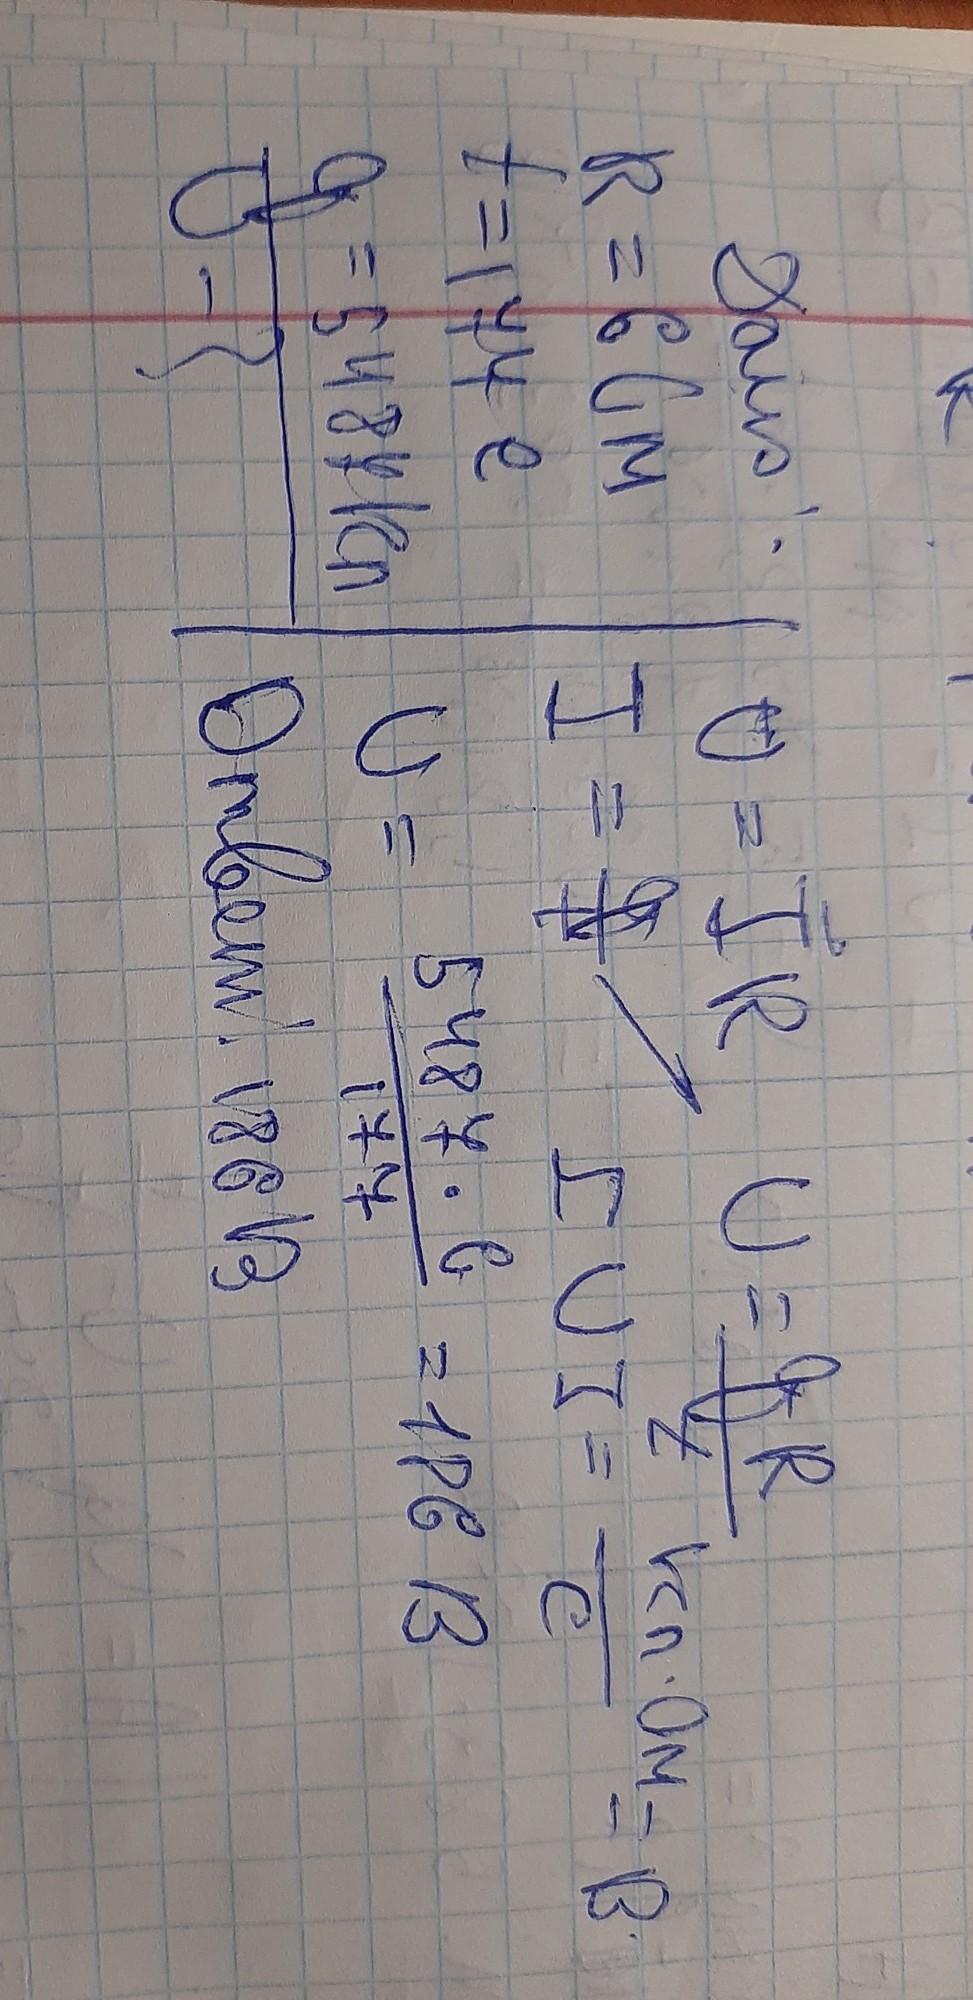 Дано:
R = 6 Ом
t = 177 c
q = 5487 Кл
U - ?
U = IR
U = qR/t
I = q/t
[U] = Кл·Ом/с = В
U = 5487·6/177 = 186 В
Ответ: 186 В